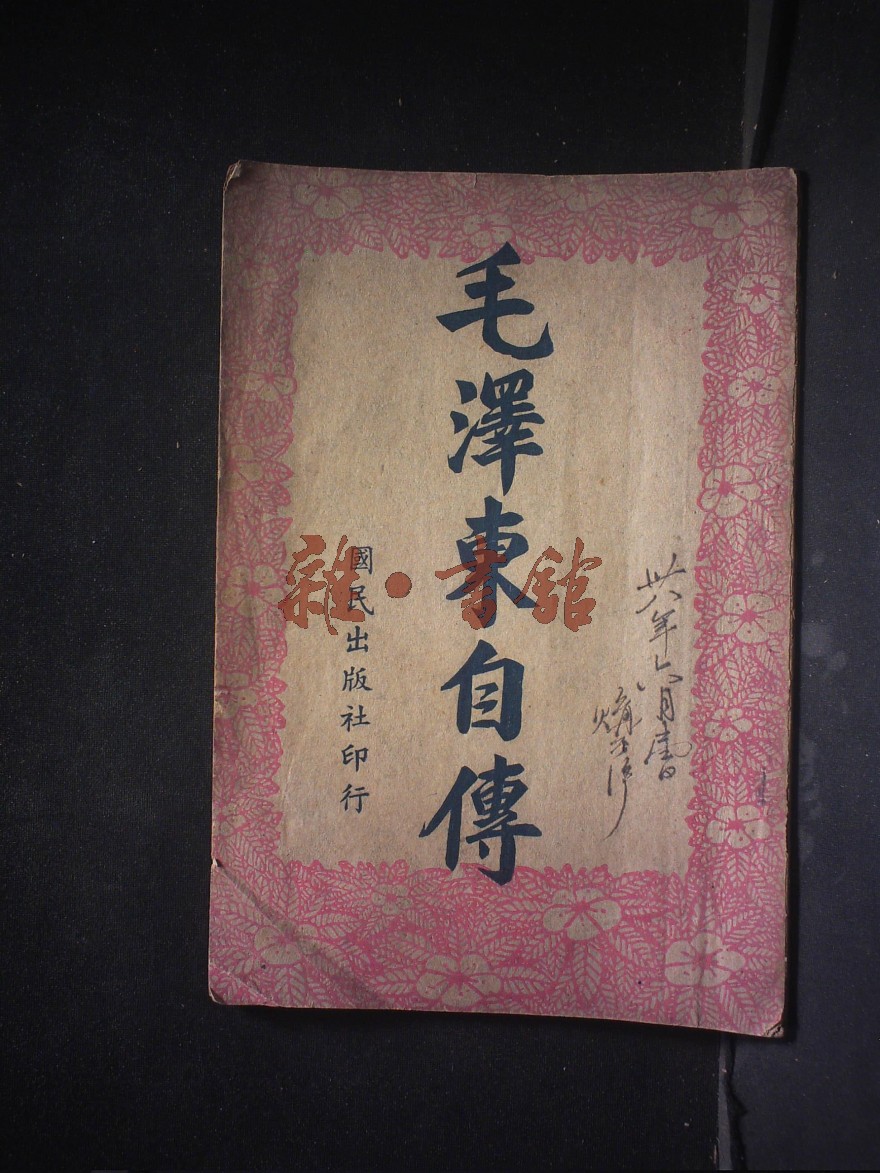 卅八年六月書
毛澤東自傳
國民出版社印行
雜·書館